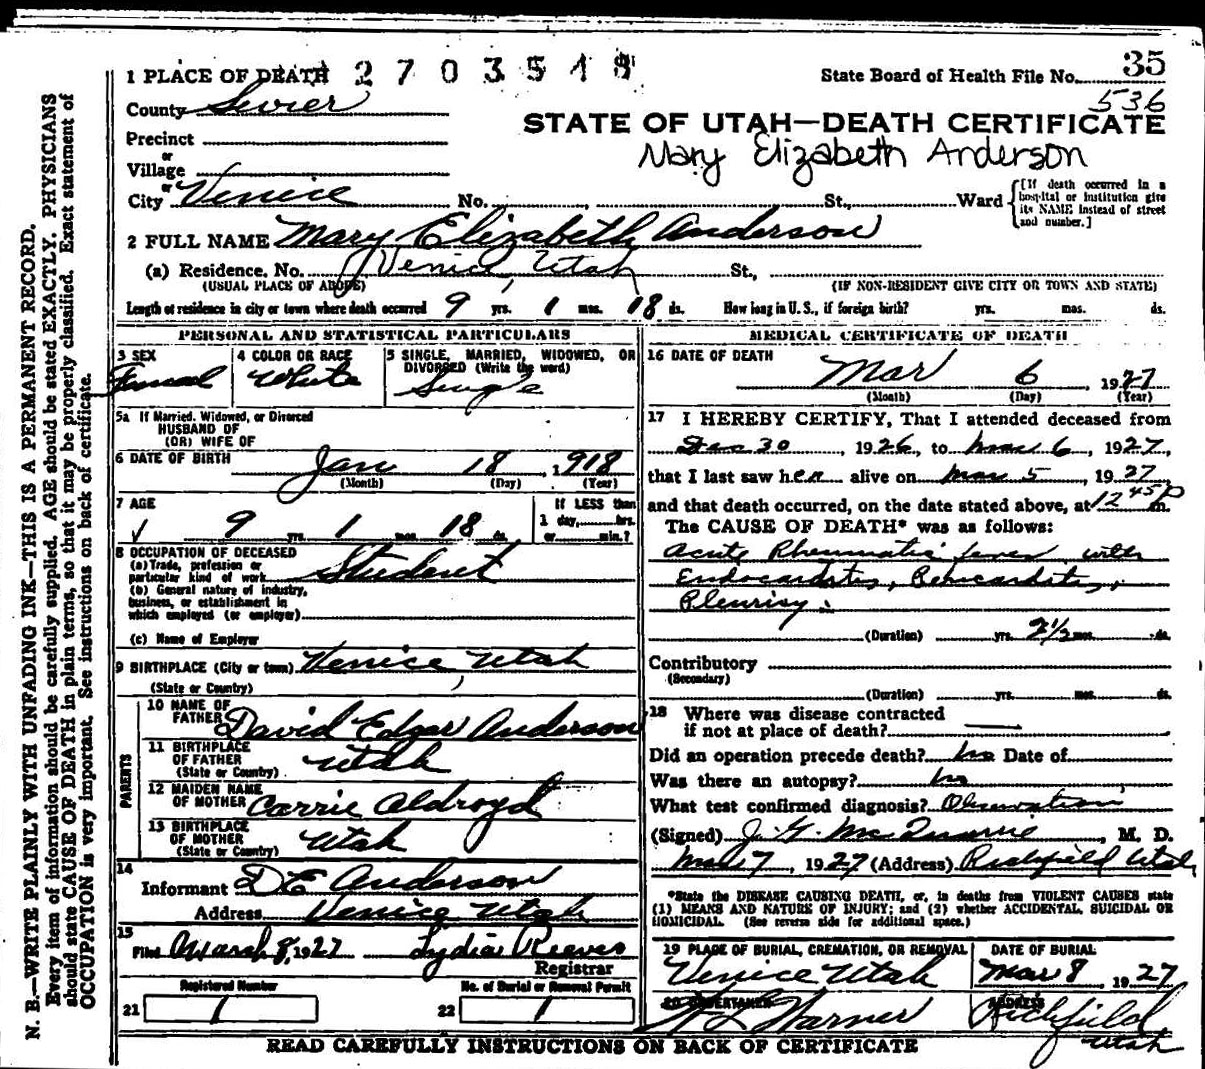 1 PLACE OF DEATH 2 7 0 3 5 1 8
State Board of Health File No. 35
County Sevier
536
STATE OF UTAH—DEATH CERTIFICATE
Mary Elizabeth Anderson
Precinct
or
Village
or
City Venice No. St., Ward
[If death occurred in a hospital or institution give its NAME instead of street and number.]
2 FULL NAME Mary Elizabeth Anderson
(a) Residence. No. Venice, Utah St.,
(USUAL PLACE OF ABODE) (IF NON-RESIDENT GIVE CITY OR TOWN AND STATE)
Length of residence in city or town where death occurred 9 yrs. 1 mos. 18 ds. How long in U. S., if foreign birth? yrs. mos. ds.
PERSONAL AND STATISTICAL PARTICULARS
3 SEX
Femal
4 COLOR OR RACE
White
5 SINGLE, MARRIED, WIDOWED, OR
DIVORCED (Write the word)
Single
5a If Married, Widowed, or Divorced
HUSBAND OF
(OR) WIFE OF
6 DATE OF BIRTH Jan 18, 1918
(Month) (Day) (Year)
7 AGE
9 yrs. 1 mos. 18 ds.
If LESS than
1 day, hrs.
or min.?
8 OCCUPATION OF DECEASED
(a) Trade, profession or
particular kind of work Student
(b) General nature of industry,
business, or establishment in
which employed (or employer)
(c) Name of Employer
9 BIRTHPLACE (City or town) Venice, Utah
(State or Country)
PARENTS
10 NAME OF
FATHER David Edgar Anderson
11 BIRTHPLACE
OF FATHER Utah
(State or Country)
12 MAIDEN NAME
OF MOTHER Carrie Oldroyd
13 BIRTHPLACE
OF MOTHER Utah
(State or Country)
14
Informant D E Anderson
Address Venice Utah
15
Filed March 8, 1927 Lydia Reeves
Registrar
Registered Number No. of Burial or Removal Permit
21 1 22 1
MEDICAL CERTIFICATE OF DEATH
16 DATE OF DEATH
Mar 6, 1927
(Month) (Day) (Year)
17 I HEREBY CERTIFY, That I attended deceased from
Dec 30, 1926, to Mar 6, 1927,
that I last saw her alive on Mar 5, 1927
and that death occurred, on the date stated above, at 12 45 P m.
The CAUSE OF DEATH* was as follows:
Acute Rheumatic fever with
Endocarditis, Pericarditis,
Pleurisy.
(Duration) yrs. 2 1/2 mos. ds.
Contributory
(Secondary)
(Duration) yrs. mos. ds.
18 Where was disease contracted
if not at place of death?
Did an operation precede death? no Date of
Was there an autopsy? no
What test confirmed diagnosis? Observation
(Signed) J. G. McQuarrie, M. D.
Mar 7, 1927 (Address) Richfield Utah
*State the DISEASE CAUSING DEATH, or, in deaths from VIOLENT CAUSES state
(1) MEANS AND NATURE OF INJURY; and (2) whether ACCIDENTAL, SUICIDAL OR
HOMICIDAL. (See reverse side for additional space.)
19 PLACE OF BURIAL, CREMATION, OR REMOVAL DATE OF BURIAL
Venice Utah Mar 8 1927
20 UNDERTAKER ADDRESS
Warner Richfield,
Utah
READ CAREFULLY INSTRUCTIONS ON BACK OF CERTIFICATE
N. B.—WRITE PLAINLY WITH UNFADING INK—THIS IS A PERMANENT RECORD.
Every item of information should be carefully supplied. AGE should be stated EXACTLY. PHYSICIANS
should state CAUSE OF DEATH in plain terms, so that it may be properly classified. Exact statement of
OCCUPATION is very important. See instructions on back of certificate.